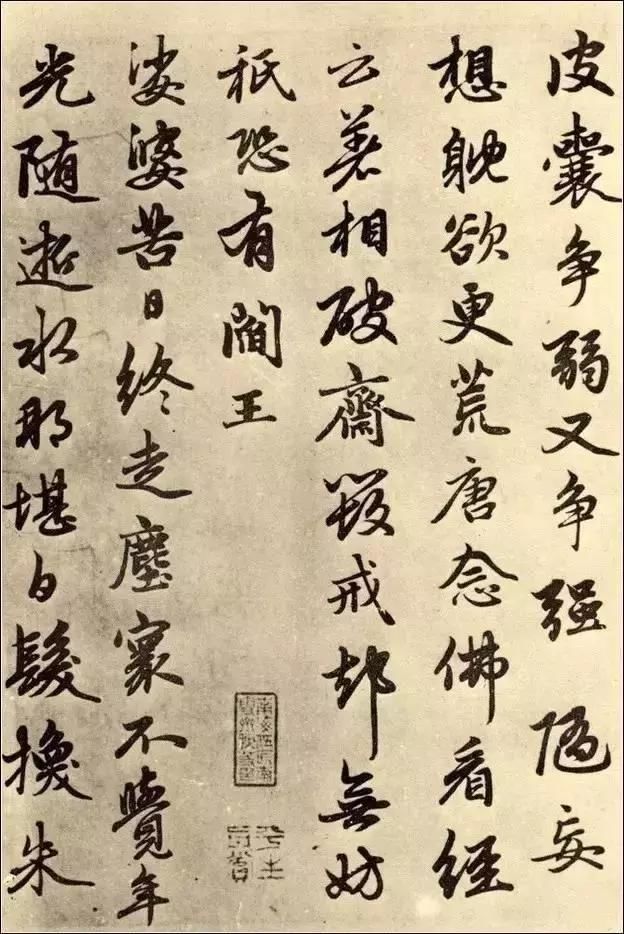 皮囊争弱又争强随妄
想躭欲更荒唐念佛看經
云著相破齋毀戒却無妨
祇恐有閻王
娑婆苦日終走塵寰不覺年
光随逝水那堪白髮換朱